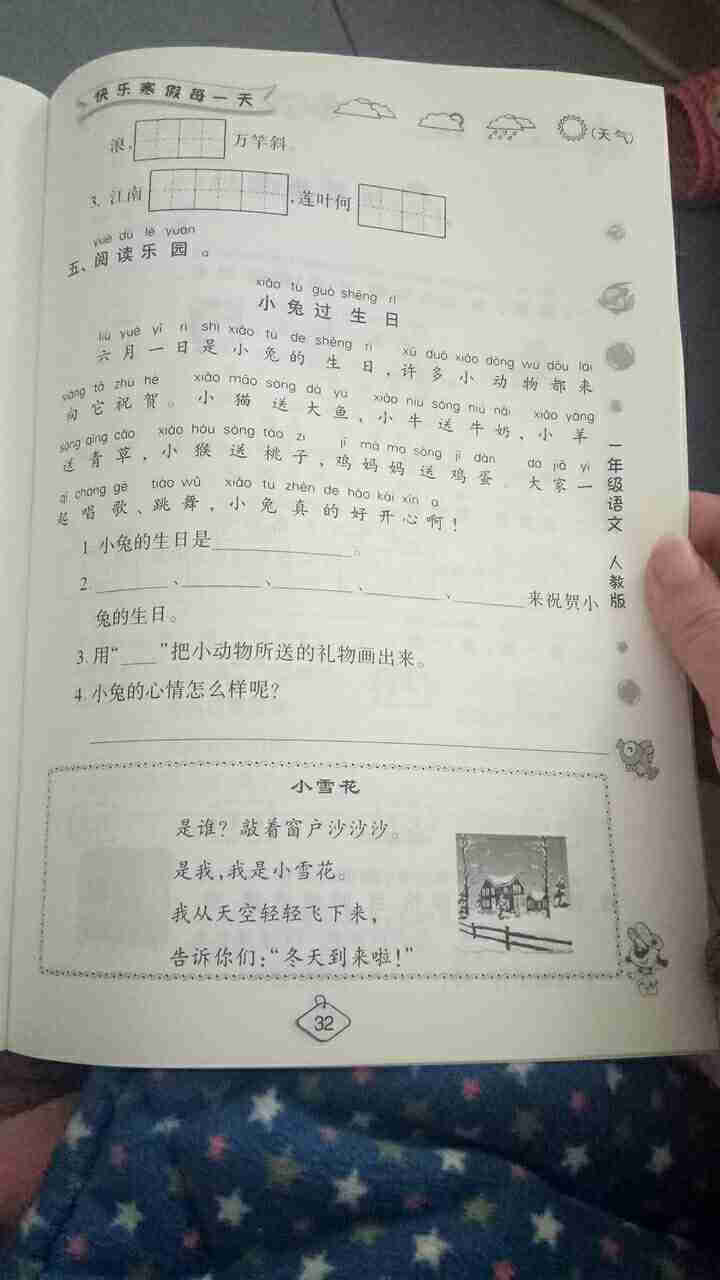 快乐寒假每一天
(天气)
浪, 万竿斜。
3. 江南 ,莲叶何 。
yuè dú lè yuán
五、阅读乐园。
xiǎo tù guò shēng rì
小兔过生日
liù yuè yī rì shì xiǎo tù de shēng rì xǔ duō xiǎo dòng wù dōu lái
六月一日是小兔的生日,许多小动物都来
xiàng tā zhù hè xiǎo māo sòng dà yú xiǎo niú sòng niú nǎi xiǎo yáng
向它祝贺。小猫送大鱼,小牛送牛奶,小羊
sòng qīng cǎo xiǎo hóu sòng táo zi jī mā ma sòng jī dàn dà jiā yì
送青草,小猴送桃子,鸡妈妈送鸡蛋。大家一
qǐ chàng gē tiào wǔ xiǎo tù zhēn de hǎo kāi xīn a
起唱歌、跳舞,小兔真的好开心啊!
1 小兔的生日是____________。
2.______、______、______、______、______来祝贺小
兔的生日。
3. 用“____”把小动物所送的礼物画出来。
4. 小兔的心情怎么样呢?
小雪花
是谁? 敲着窗户沙沙沙。
是我,我是小雪花。
我从天空轻轻飞下来,
告诉你们:“冬天到来啦!”
一年级语文 人教版
32